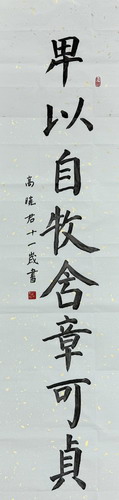 卑以自牧含章可貞
高 君十一歲書